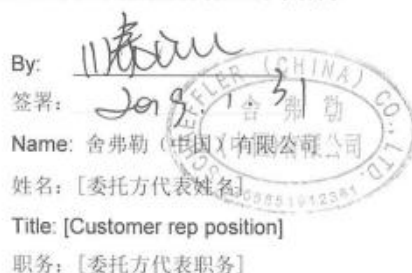 By:
签署:
2019.1.31
Name: 舍弗勒（中国）有限公司
姓名: [委托方代表姓名]
Title: [Customer rep position]
职务: [委托方代表职务]
SCHAEFFLER (CHINA) CO., LTD.
舍弗勒